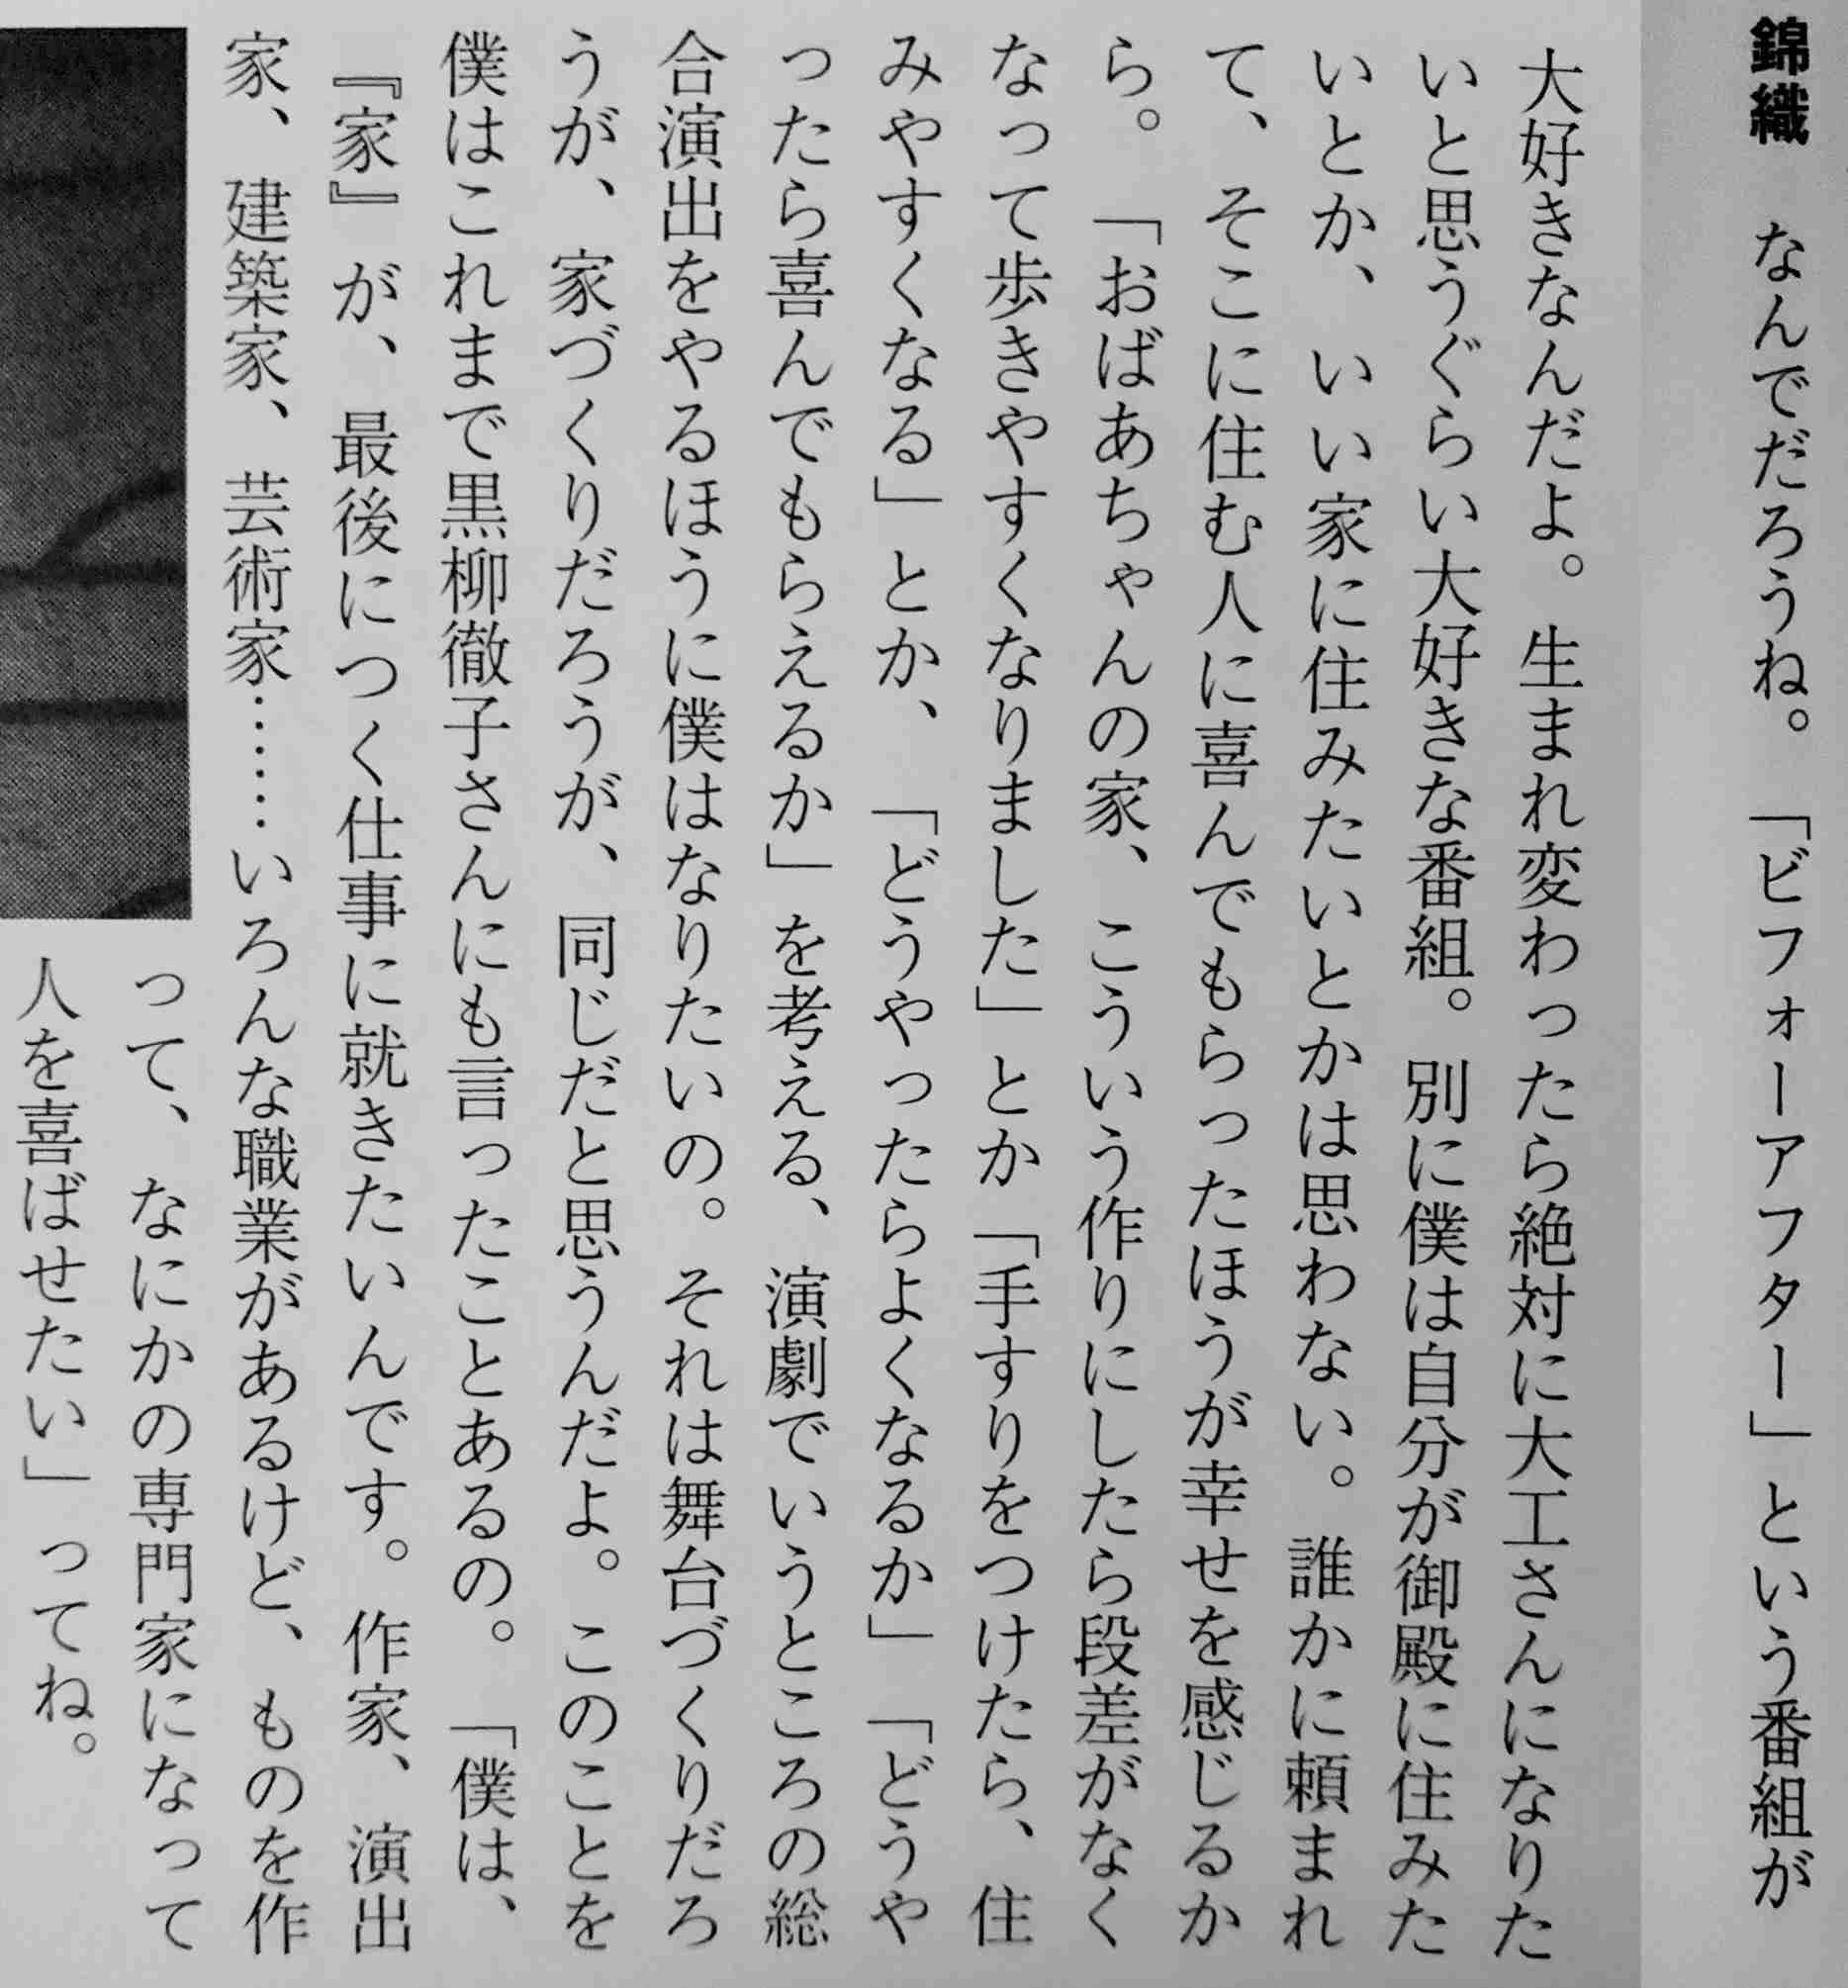 錦織　なんでだろうね。「ビフォーアフター」という番組が
大好きなんだよ。生まれ変わったら絶対に大工さんになりた
いと思うぐらい大好きな番組。別に僕は自分が御殿に住みた
いとか、いい家に住みたいとかは思わない。誰かに頼まれ
て、そこに住む人に喜んでもらったほうが幸せを感じるか
ら。「おばあちゃんの家、こういう作りにしたら段差がなく
なって歩きやすくなりました」とか「手すりをつけたら、住
みやすくなる」とか、「どうやったらよくなるか」「どうや
ったら喜んでもらえるか」を考える、演劇でいうところの総
合演出をやるほうに僕はなりたいの。それは舞台づくりだろ
うが、家づくりだろうが、同じだと思うんだよ。このことを
僕はこれまで黒柳徹子さんにも言ったことあるの。「僕は、
『家』が、最後につく仕事に就きたいんです。作家、演出
家、建築家、芸術家……いろんな職業があるけど、ものを作
って、なにかの専門家になって
人を喜ばせたい」ってね。